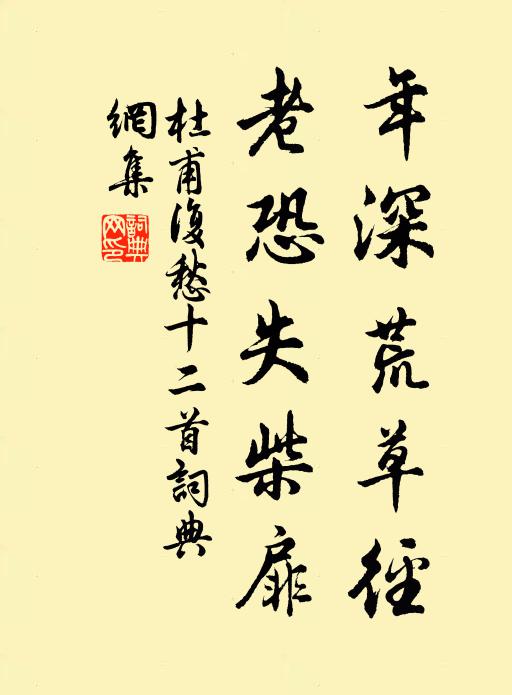 年深荒草徑
老恐失柴扉
杜甫復愁十二首詞典
網集
詞典
网印